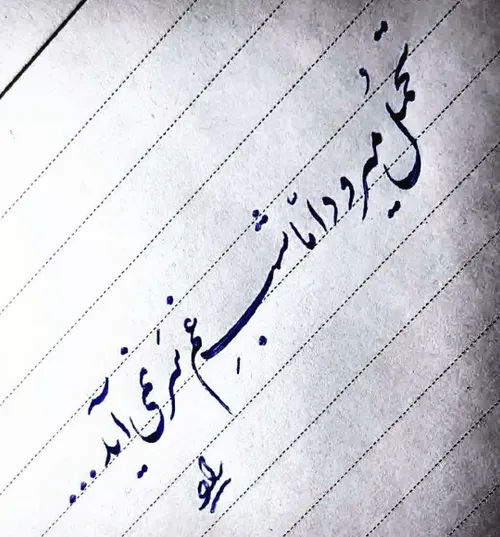 تحمل میرود امّا شبِ غم سَر نمی آید...